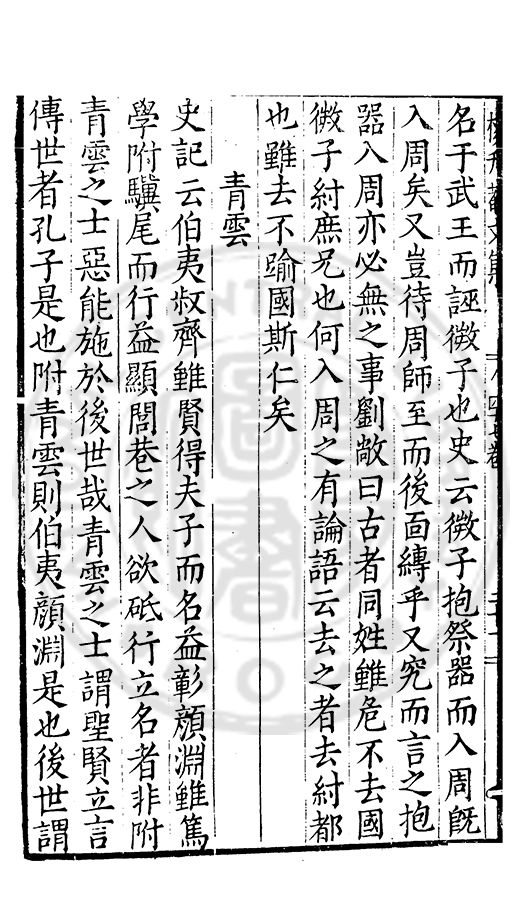 名于武王而誣微子也史云微子抱祭器而入周既
入周矣又豈待周師至而後面縛乎又究而言之抱
器入周亦必無之事劉敞曰古者同姓雖危不去國
微子紂庶兄也何入周之有論語云去之者去紂都
也雖去不踰國斯仁矣
青雲
史記云伯夷叔齊雖賢得夫子而名益彰顔淵雖篤
學附驥尾而行益顯閭巷之人欲砥行立名者非附
青雲之士惡能施於後世哉青雲之士謂聖賢立言
傳世者孔子是也附青雲則伯夷顔淵是也後世謂